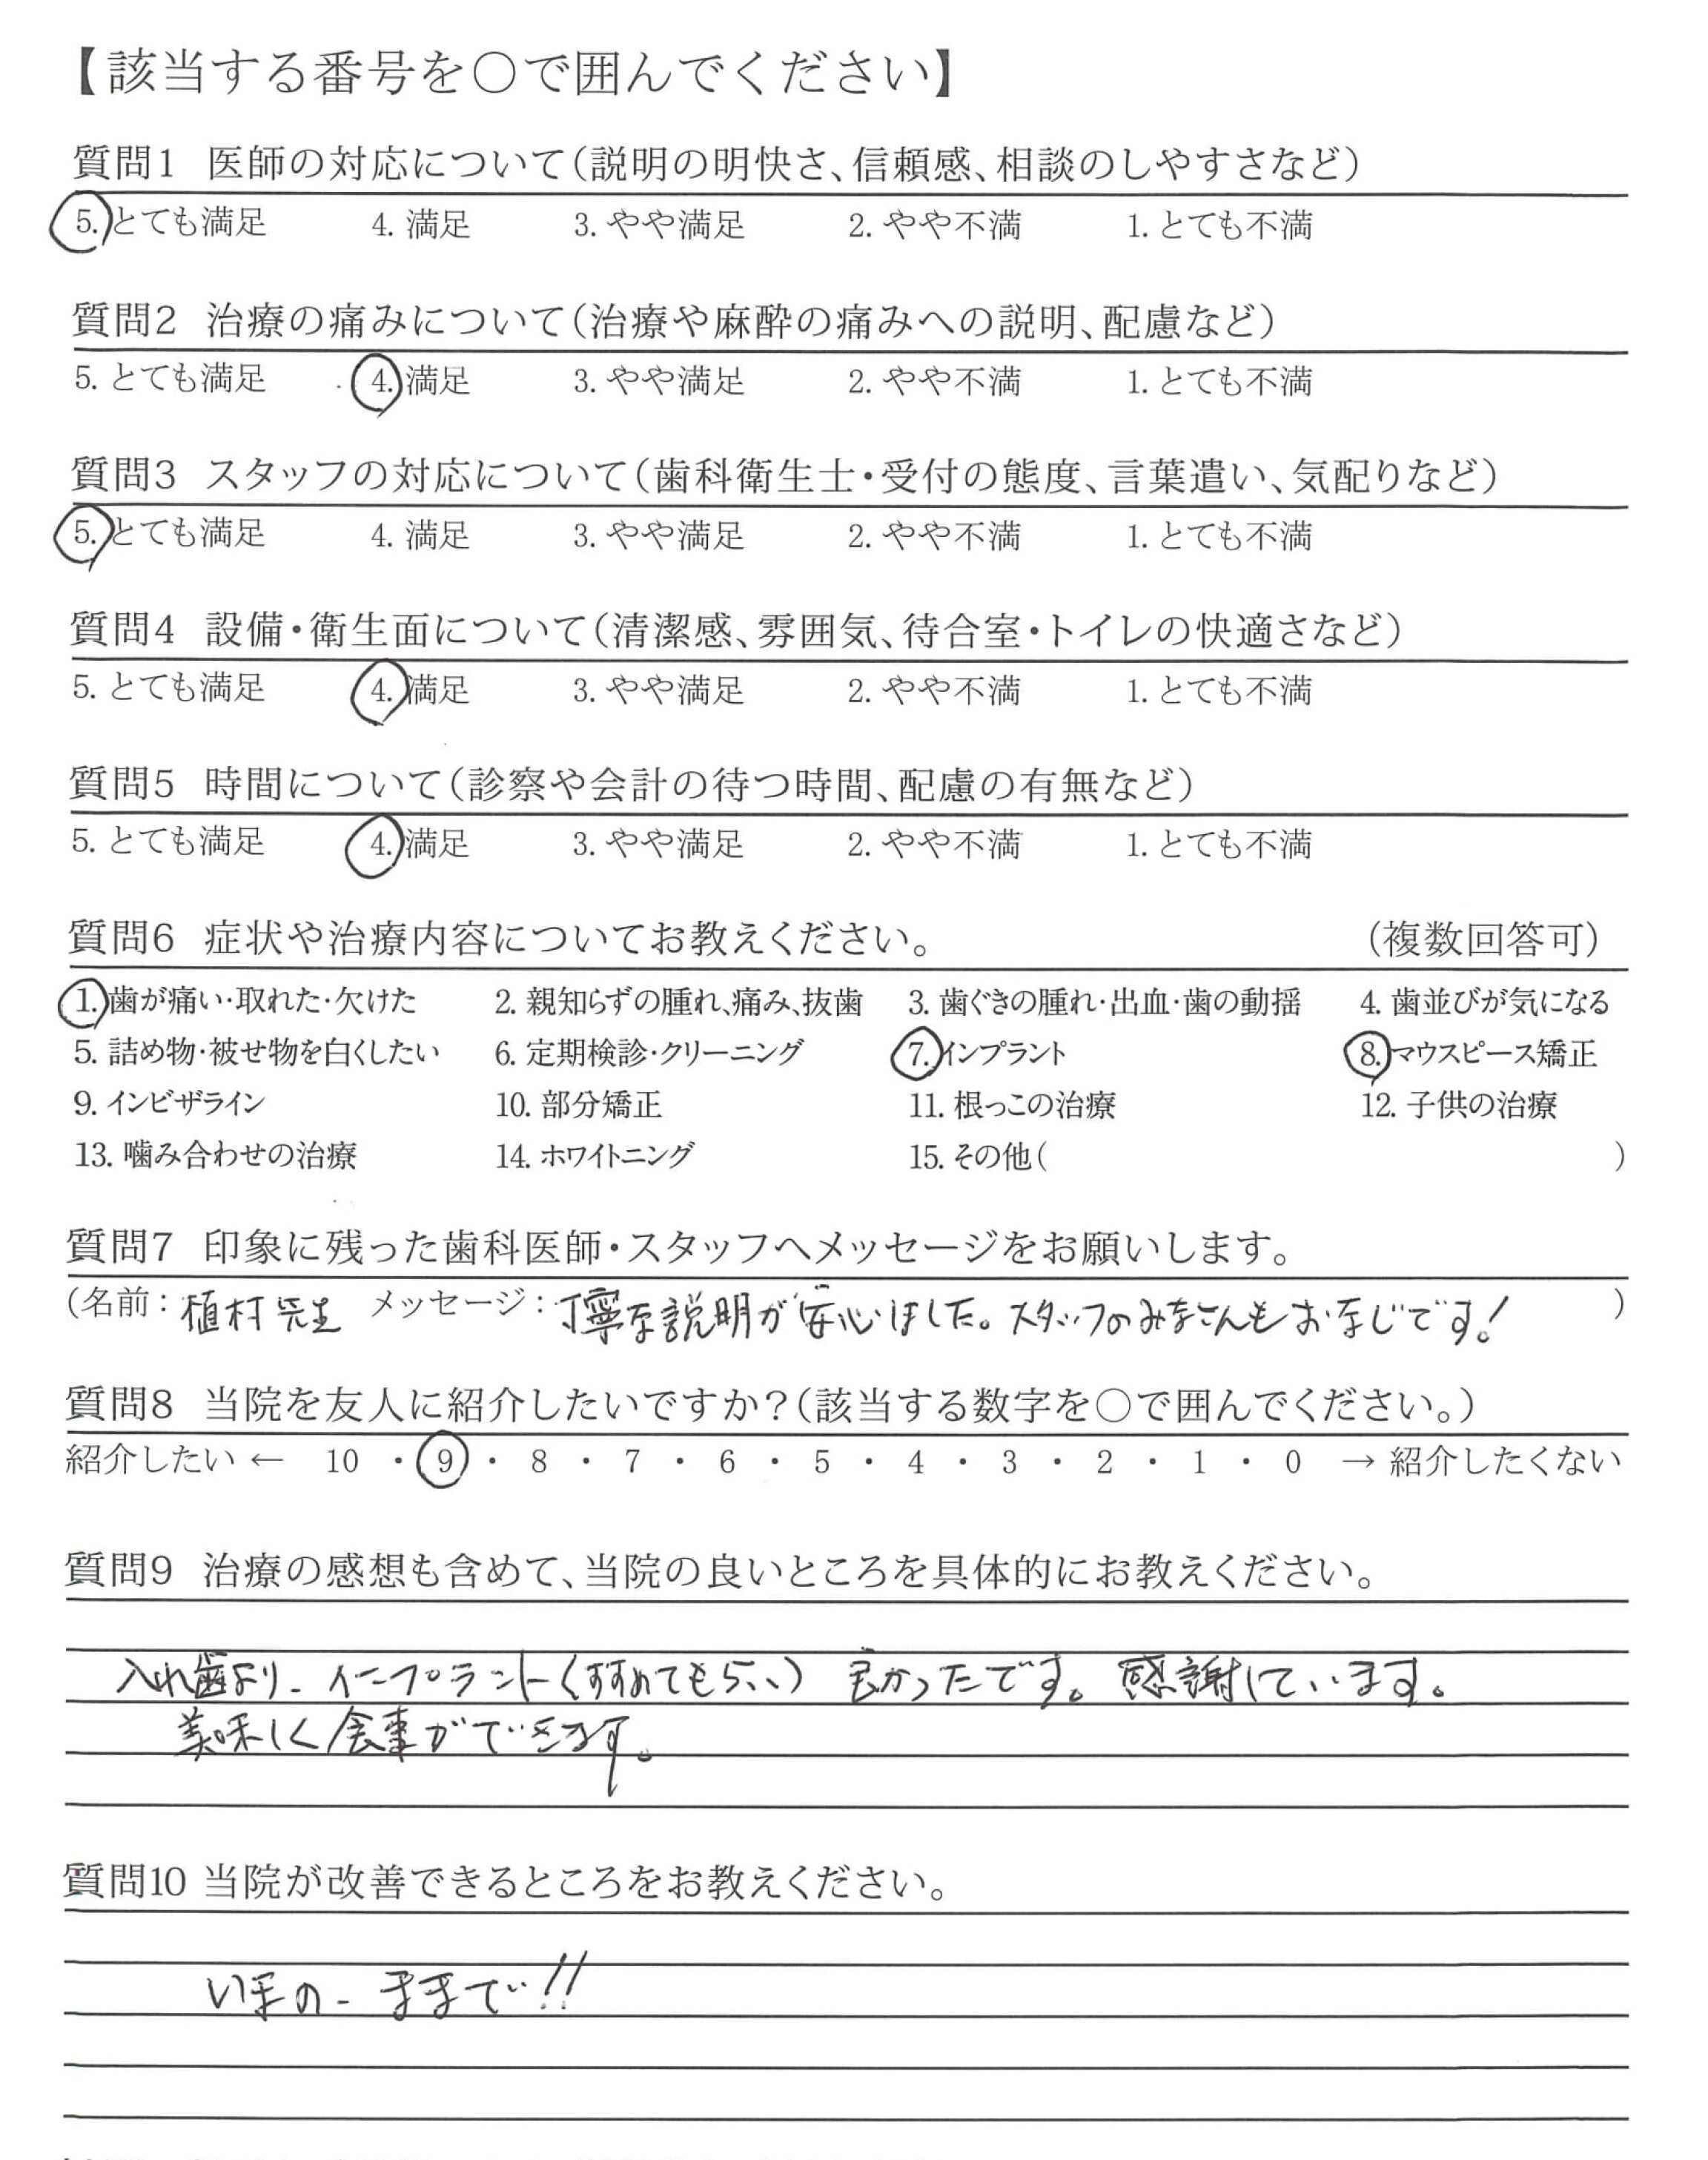 【該当する番号を○で囲んでください】
質問1 医師の対応について（説明の明快さ、信頼感、相談のしやすさなど）
5. とても満足 4. 満足 3. やや満足 2. やや不満 1. とても不満
質問2 治療の痛みについて（治療や麻酔の痛みへの説明、配慮など）
5. とても満足 4. 満足 3. やや満足 2. やや不満 1. とても不満
質問3 スタッフの対応について（歯科衛生士・受付の態度、言葉遣い、気配りなど）
5. とても満足 4. 満足 3. やや満足 2. やや不満 1. とても不満
質問4 設備・衛生面について（清潔感、雰囲気、待合室・トイレの快適さなど）
5. とても満足 4. 満足 3. やや満足 2. やや不満 1. とても不満
質問5 時間について（診察や会計の待つ時間、配慮の有無など）
5. とても満足 4. 満足 3. やや満足 2. やや不満 1. とても不満
質問6 症状や治療内容についてお教えください。 （複数回答可）
1. 歯が痛い・取れた・欠けた 2. 親知らずの腫れ、痛み、抜歯 3. 歯ぐきの腫れ・出血・歯の動揺 4. 歯並びが気になる
5. 詰め物・被せ物を白くしたい 6. 定期検診・クリーニング 7. インプラント 8. マウスピース矯正
9. インビザライン 10. 部分矯正 11. 根っこの治療 12. 子供の治療
13. 噛み合わせの治療 14. ホワイトニング 15. その他（ ）
質問7 印象に残った歯科医師・スタッフへメッセージをお願いします。
（名前：植村先生 メッセージ：丁寧な説明が安心しました。スタッフのみなさんもおなじです！ ）
質問8 当院を友人に紹介したいですか？（該当する数字を○で囲んでください。）
紹介したい ← 10 ・ 9 ・ 8 ・ 7 ・ 6 ・ 5 ・ 4 ・ 3 ・ 2 ・ 1 ・ 0 → 紹介したくない
質問9 治療の感想も含めて、当院の良いところを具体的にお教えください。
入れ歯より、インプラント（すすめてもらい）良かったです。感謝しています。
美味しく食事ができます。
質問10 当院が改善できるところをお教えください。
いまの、ままで!!